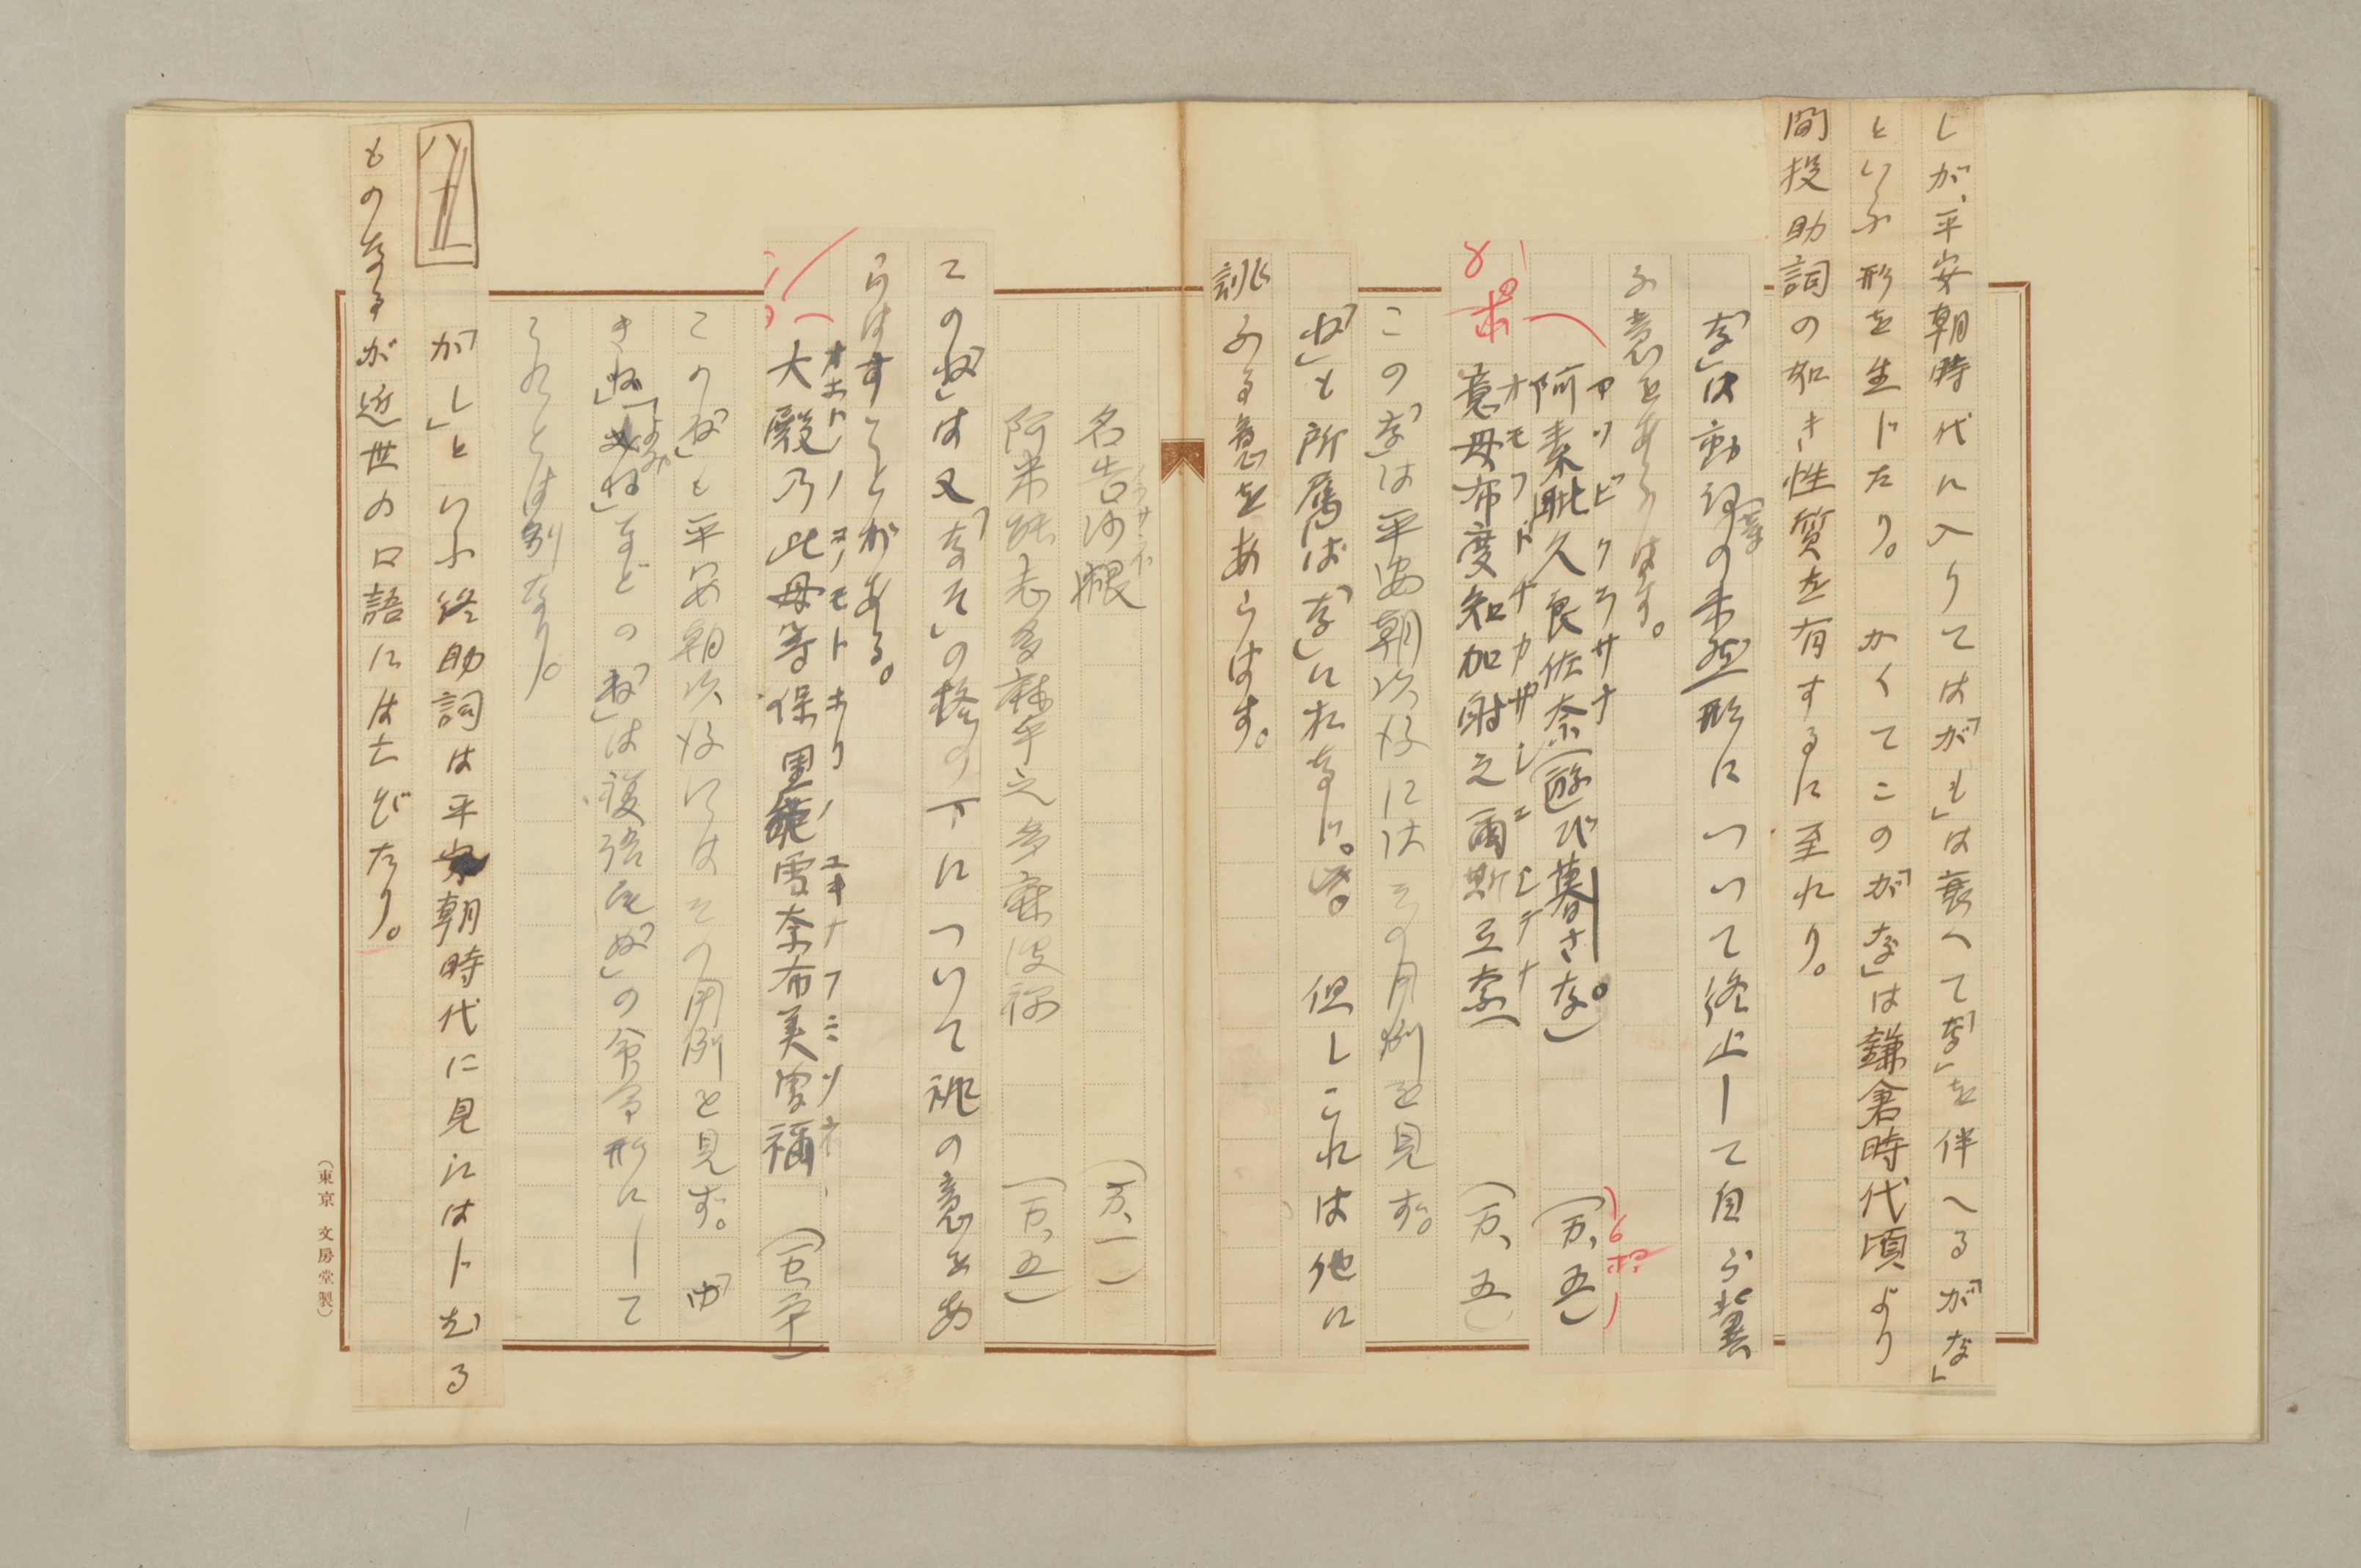 しが、平安朝時代に入りては「がも」は衰へて「な」を伴へる「がな」
といふ形を生じたり。かくてこの「がな」は鎌倉時代頃より
間投助詞の如き性質を有するに至れり。
「な」は動詞の未然形について終止して自ら冀
ふ意をあらはす。
アソビクラサナ
阿素毗久良佐奈(遊び暮さな。) (万、五)
オモフドチカザシニシテナ
意母布度知加射之爾斯弖奈 (万、五)
この「な」は平安朝以後にはその用例を見ず。
「ね」も所属は「な」に相等し。 但しこれは他に
誂ふる意をあらはす。
名告沙根 (万、一)
ノラサネ
阿米能志多麻乎之多麻波祢 (万、五)
この「ね」は又「なそ」の格の下について祧の意をあ
らはすことがある。
オホトノノコノモトホリノユキナフミソネ
大殿乃此母等保里能雪奈布美曽禰、 (万、十)
この「ね」も平安朝以後にはその用例を見ず。「ゆ
きね」「よみね」などの「ね」は複語尾「ぬ」の命令形にして
これとは別なり。
「かし」といふ終助詞は平安朝時代に見えはじむる
ものなるが近世の口語にはほろびたり。
(東京 文房堂製)